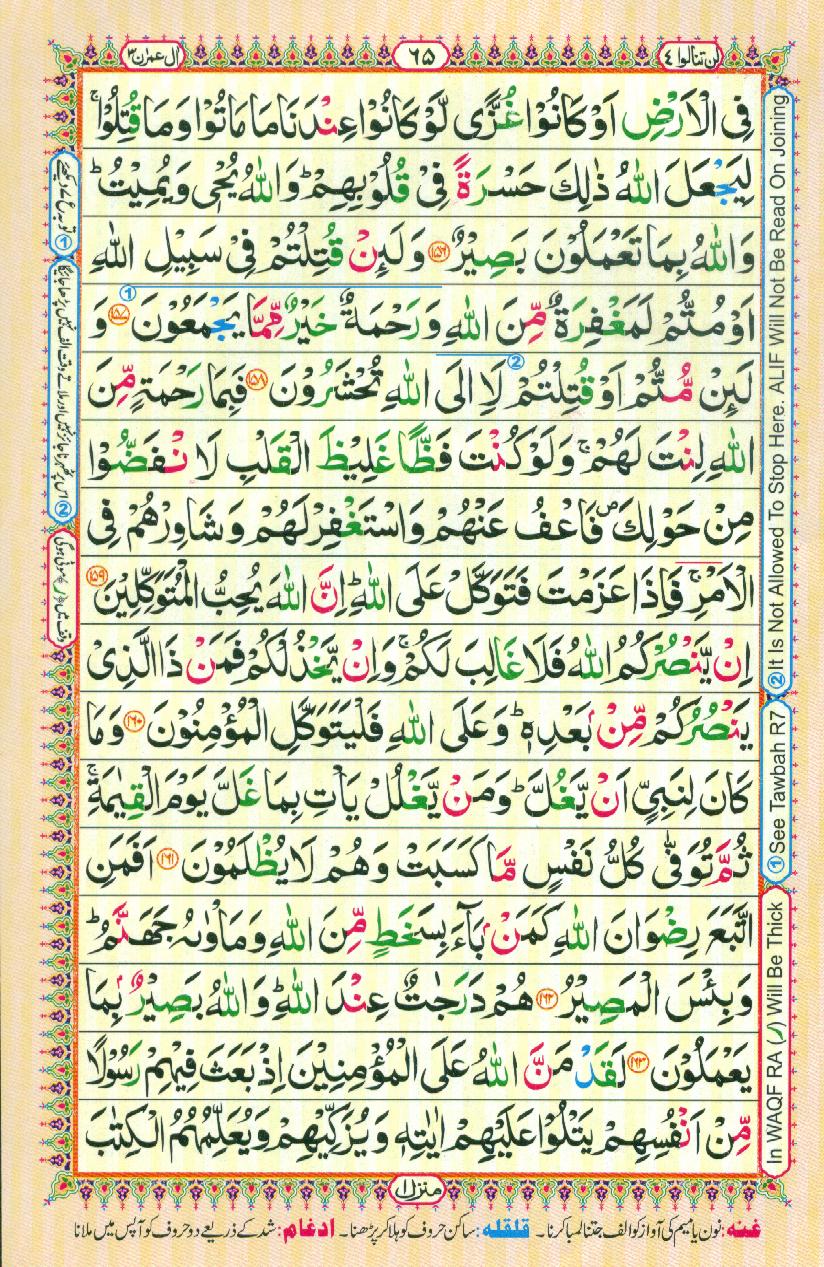 لن تنالوا ٤
٦٥
اٰل عمرٰن ٣
فِی الْاَرْضِ اَوْ كَانُوْا غُزًّی لَّوْ كَانُوْا عِنْدَنَا مَا مَاتُوْا وَمَا قُتِلُوْا ۚ
لِیَجْعَلَ اللّٰهُ ذٰلِكَ حَسْرَةً فِیْ قُلُوْبِهِمْ ؕ وَاللّٰهُ یُحْیٖ وَیُمِیْتُ ؕ
وَاللّٰهُ بِمَا تَعْمَلُوْنَ بَصِیْرٌ ﴿۱۵۶﴾ وَلَئِنْ قُتِلْتُمْ فِیْ سَبِیْلِ اللّٰهِ
اَوْ مُتُّمْ لَمَغْفِرَةٌ مِّنَ اللّٰهِ وَرَحْمَةٌ خَیْرٌ مِّمَّا یَجْمَعُوْنَ ﴿۱۵۷﴾ وَ
لَئِنْ مُّتُّمْ اَوْ قُتِلْتُمْ لَاِ۠الَی اللّٰهِ تُحْشَرُوْنَ ﴿۱۵۸﴾ فَبِمَا رَحْمَةٍ مِّنَ
اللّٰهِ لِنْتَ لَهُمْ ۚ وَلَوْ كُنْتَ فَظًّا غَلِیْظَ الْقَلْبِ لَا نْفَضُّوْا
مِنْ حَوْلِكَ ۪ فَاعْفُ عَنْهُمْ وَاسْتَغْفِرْ لَهُمْ وَشَاوِرْهُمْ فِی
الْاَمْرِ ۚ فَاِذَا عَزَمْتَ فَتَوَكَّلْ عَلَی اللّٰهِ ؕ اِنَّ اللّٰهَ یُحِبُّ الْمُتَوَكِّلِیْنَ ﴿۱۵۹﴾
اِنْ یَّنْصُرْكُمُ اللّٰهُ فَلَا غَالِبَ لَكُمْ ۚ وَاِنْ یَّخْذُلْكُمْ فَمَنْ ذَا الَّذِیْ
یَنْصُرُكُمْ مِّنْۢ بَعْدِهٖ ؕ وَعَلَی اللّٰهِ فَلْیَتَوَكَّلِ الْمُؤْمِنُوْنَ ﴿۱۶۰﴾ وَمَا
كَانَ لِنَبِیٍّ اَنْ یَّغُلَّ ؕ وَمَنْ یَّغْلُلْ یَاْتِ بِمَا غَلَّ یَوْمَ الْقِیٰمَةِ ۚ
ثُمَّ تُوَفّٰی كُلُّ نَفْسٍ مَّا كَسَبَتْ وَهُمْ لَا یُظْلَمُوْنَ ﴿۱۶۱﴾ اَفَمَنِ
اتَّبَعَ رِضْوَانَ اللّٰهِ كَمَنْۢ بَآءَ بِسَخَطٍ مِّنَ اللّٰهِ وَمَاْوٰىهُ جَهَنَّمُ ؕ
وَبِئْسَ الْمَصِیْرُ ﴿۱۶۲﴾ هُمْ دَرَجٰتٌ عِنْدَ اللّٰهِ ؕ وَاللّٰهُ بَصِیْرٌۢ بِمَا
یَعْمَلُوْنَ ﴿۱۶۳﴾ لَقَدْ مَنَّ اللّٰهُ عَلَی الْمُؤْمِنِیْنَ اِذْ بَعَثَ فِیْهِمْ رَسُوْلًا
مِّنْ اَنْفُسِهِمْ یَتْلُوْا عَلَیْهِمْ اٰیٰتِهٖ وَیُزَكِّیْهِمْ وَیُعَلِّمُهُمُ الْكِتٰبَ
منزل ۱
غنه: نون یا میم کی آواز کو الف جتنا لمبا کرنا۔ قلقله: ساکن حروف کو ہلا کر پڑھنا۔ ادغام: شد کے ذریعے دو حروف کو آپس میں ملانا
② It Is Not Allowed To Stop Here. ALIF Will Not Be Read On Joining
① See Tawbah R7
In WAQF RA (ر) Will Be Thick